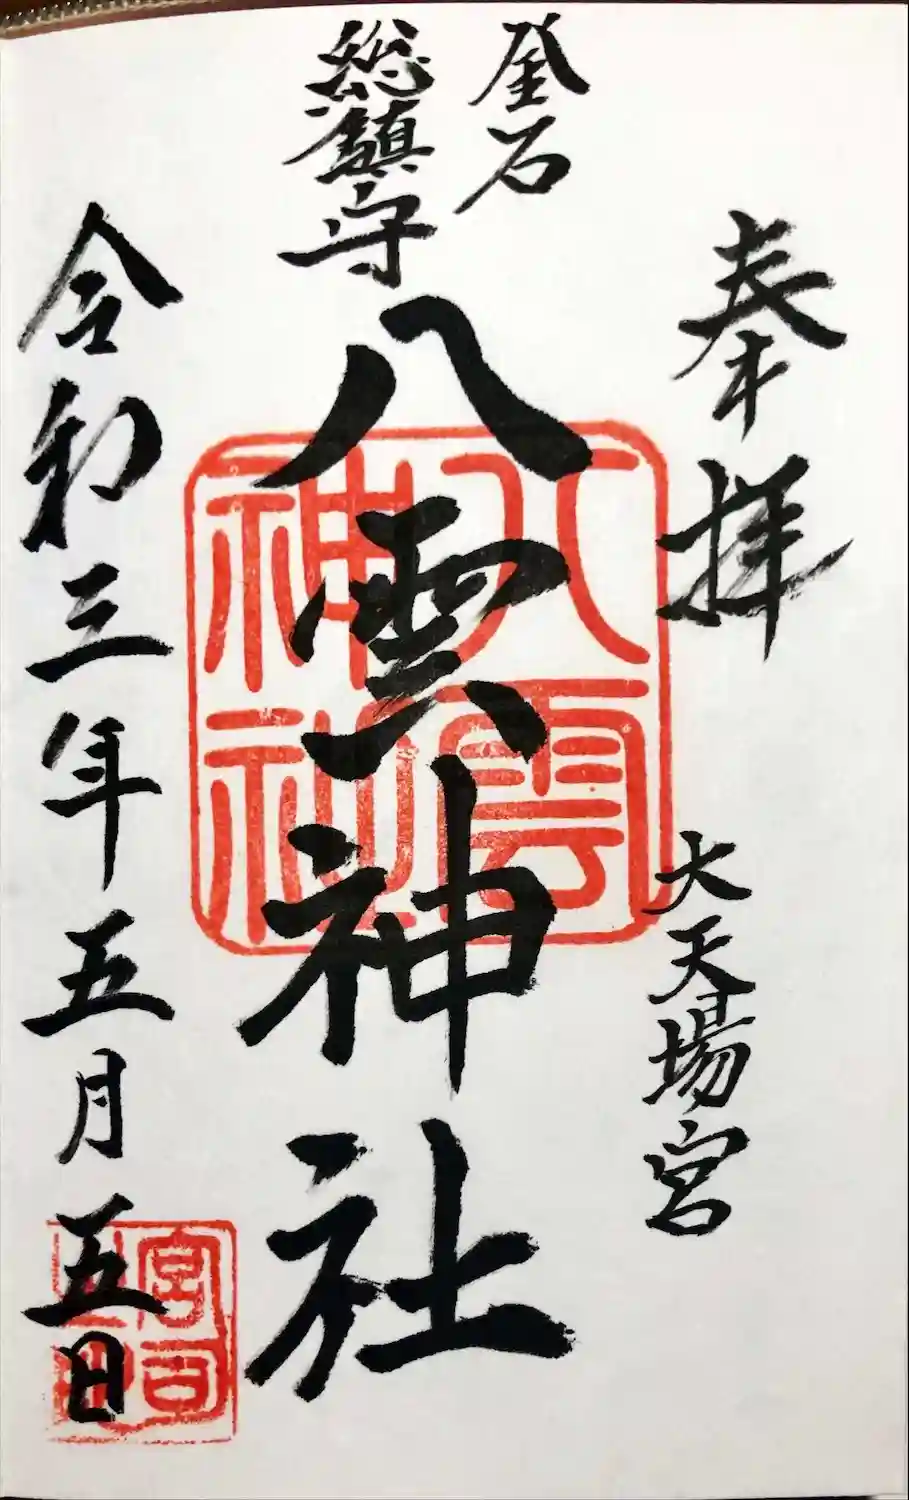 奉拝
大天場宮
釜石
総鎮守
八雲神社
令和三年五月五日
八雲
神社
宮司
之印